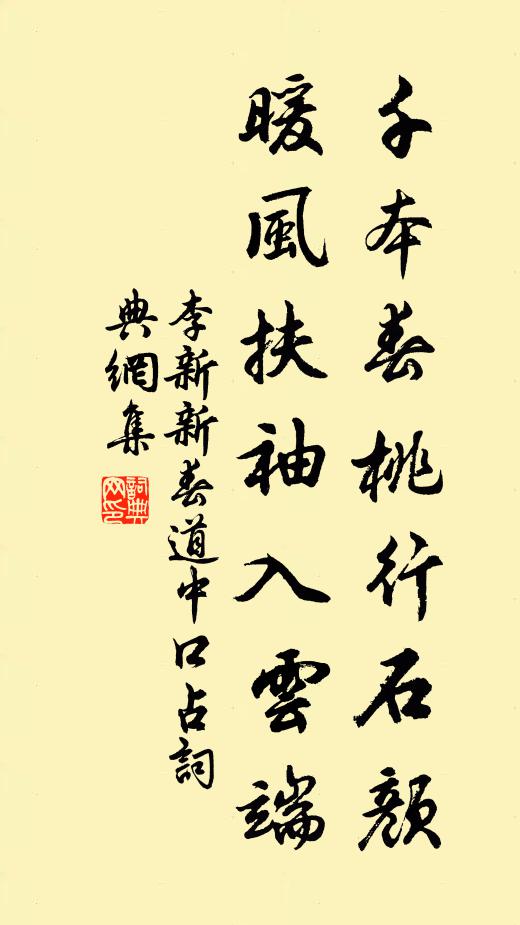 千本春桃行石顏
暖風扶袖入雲端
李新新春道中口占詞
典網集
詞典網印